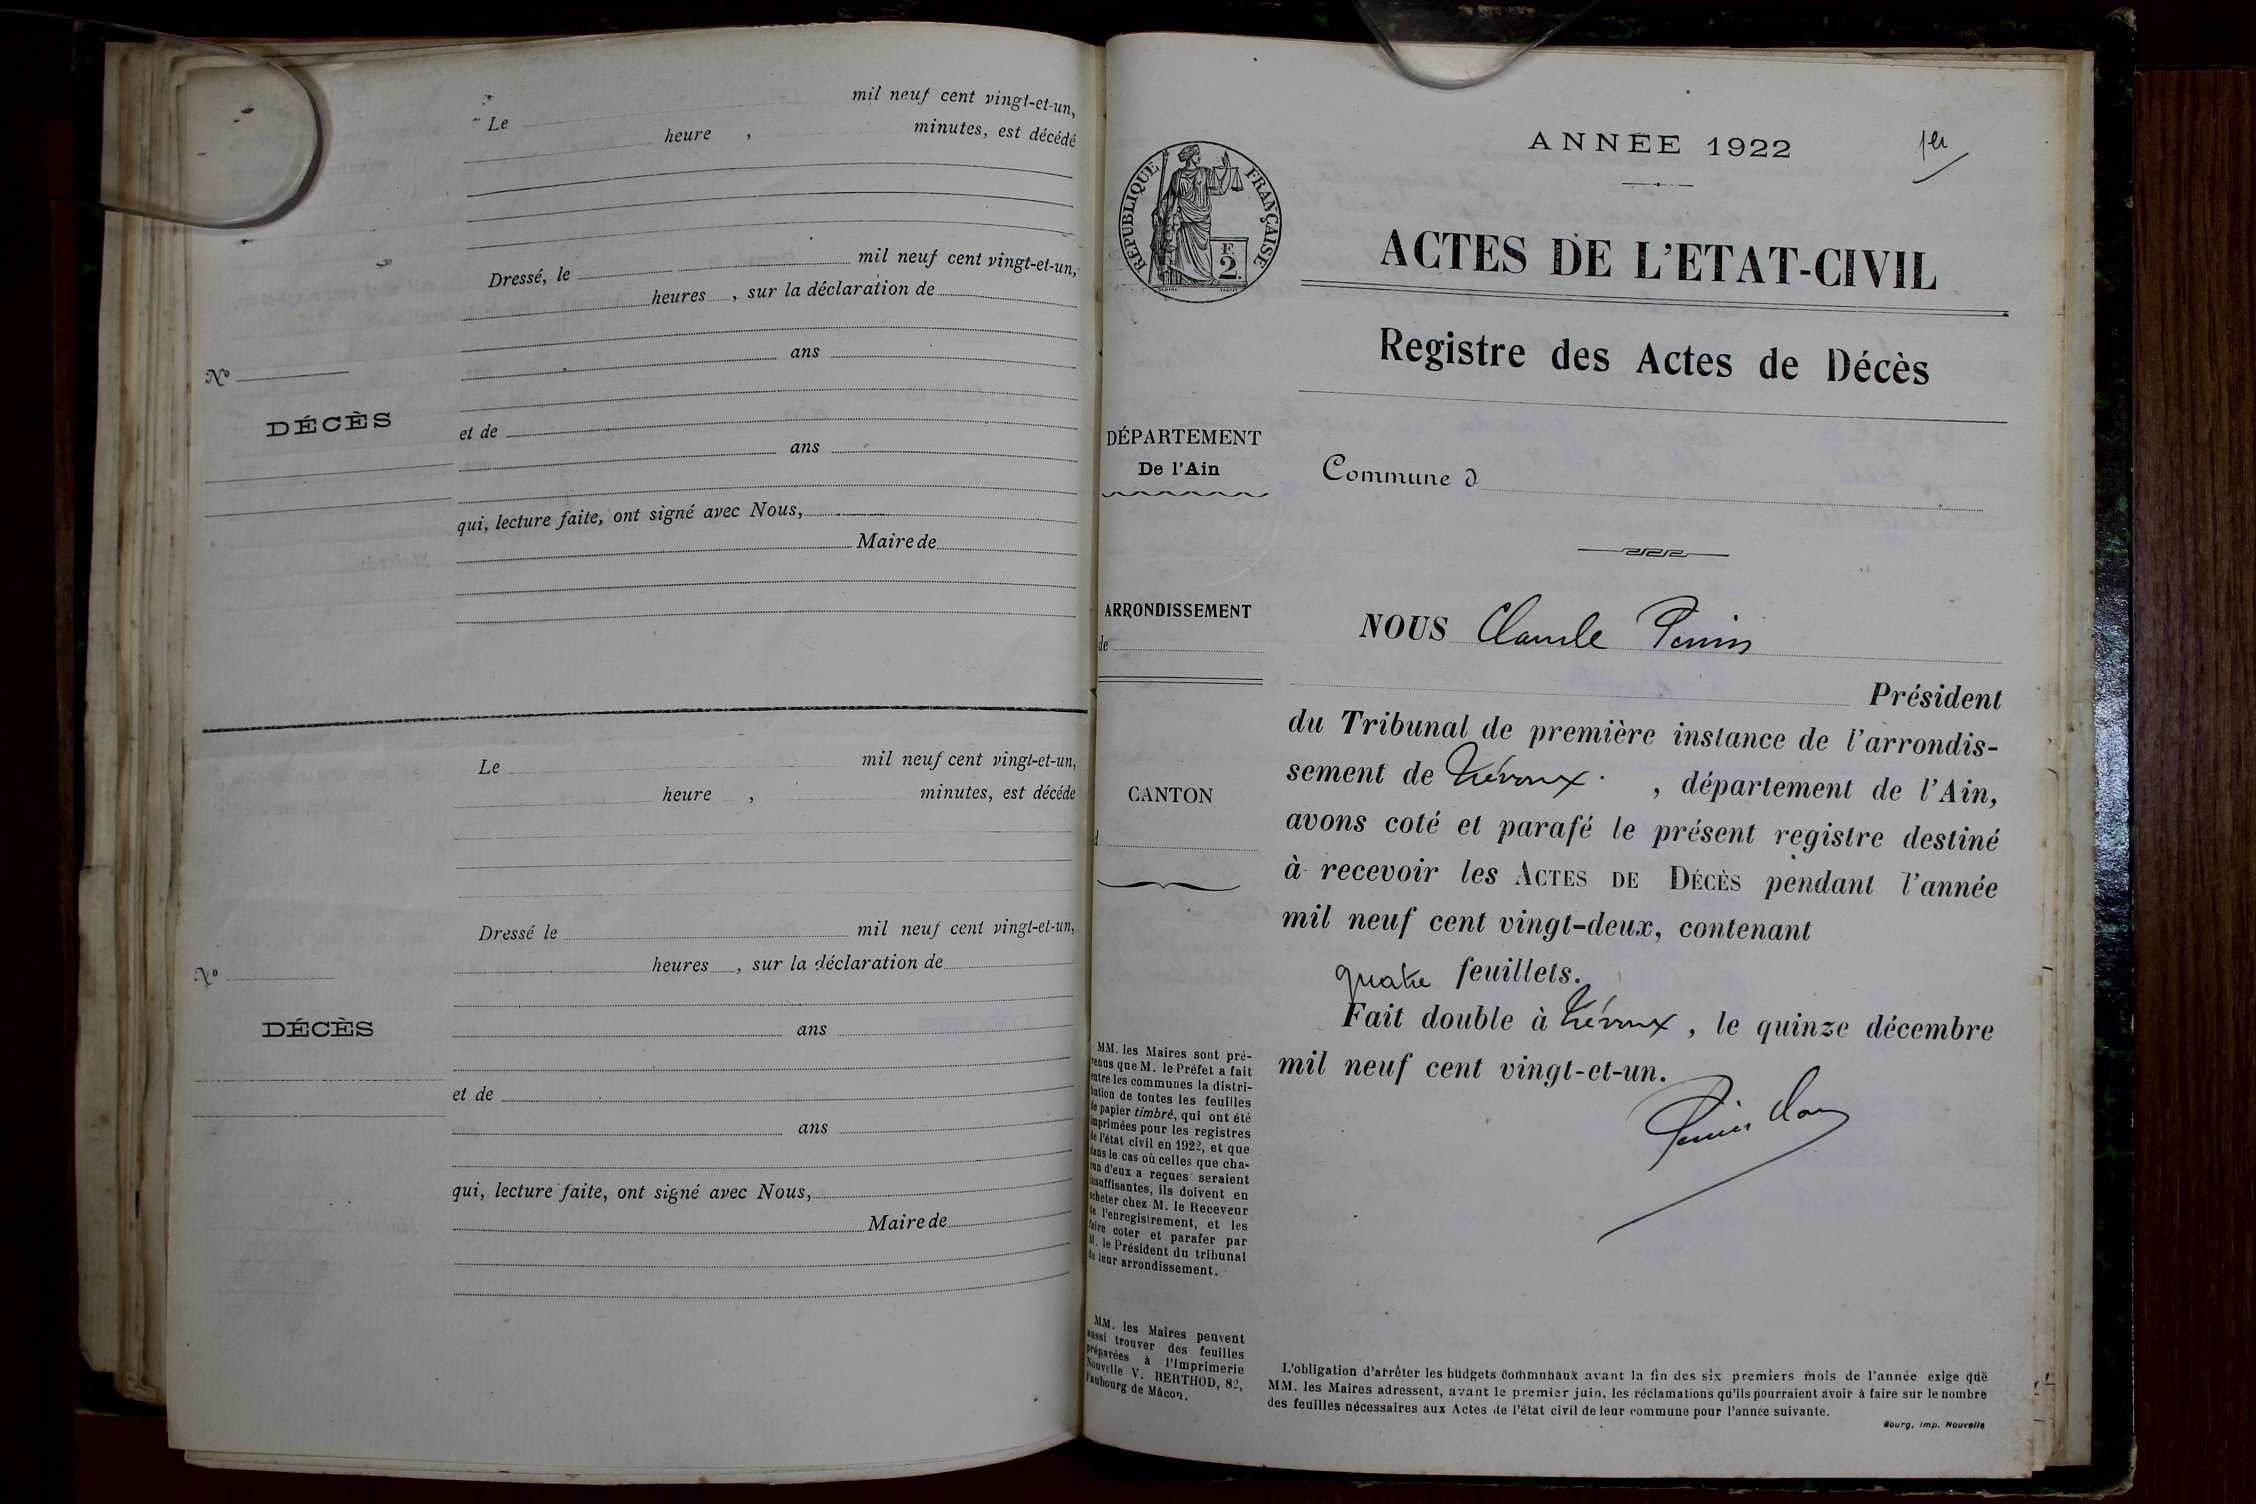 Le mil neuf cent vingt-et-un,
heure , minutes, est décédé
Dressé, le mil neuf cent vingt-et-un,
heures , sur la déclaration de
ans
Nº
DÉCÈS
et de
ans
qui, lecture faite, ont signé avec Nous,
Maire de
Le mil neuf cent vingt-et-un,
heure , minutes, est décédé
Dressé le mil neuf cent vingt-et-un,
heures , sur la déclaration de
Nº
ans
DÉCÈS
et de
ans
qui, lecture faite, ont signé avec Nous,
Maire de
ANNÉE 1922
1er
RÉPUBLIQUE FRANÇAISE
F.
2.
ACTES DE L'ETAT-CIVIL
Registre des Actes de Décès
DÉPARTEMENT
De l'Ain
Commune d
ARRONDISSEMENT
de
CANTON
d
NOUS Claude
Président
du Tribunal de première instance de l'arrondis-
sement de Trévoux , département de l'Ain,
avons coté et parafé le présent registre destiné
à recevoir les ACTES DE DÉCÈS pendant l'année
mil neuf cent vingt-deux, contenant
quatre feuillets.
Fait double à Trévoux, le quinze décembre
mil neuf cent vingt-et-un.
MM. les Maires sont pré-
venus que M. le Préfet a fait
entre les communes la distri-
bution de toutes les feuilles
de papier timbré, qui ont été
imprimées pour les registres
de l'état civil en 1922, et que
dans le cas où celles que cha-
cun d'eux a reçues seraient
insuffisantes, ils doivent en
acheter chez M. le Receveur
de l'enregistrement, et les
faire coter et parafer par
M. le Président du tribunal
de leur arrondissement.
MM. les Maires peuvent
aussi trouver des feuilles
préparées à l'Imprimerie
Nouvelle V. BERTHOD, 82,
Faubourg de Mâcon.
L'obligation d'arrêter les budgets communaux avant la fin des six premiers mois de l'année exige que
MM. les Maires adressent, avant le premier juin, les réclamations qu'ils pourraient avoir à faire sur le nombre
des feuilles nécessaires aux Actes de l'état civil de leur commune pour l'année suivante.
Bourg, Imp. Nouvelle